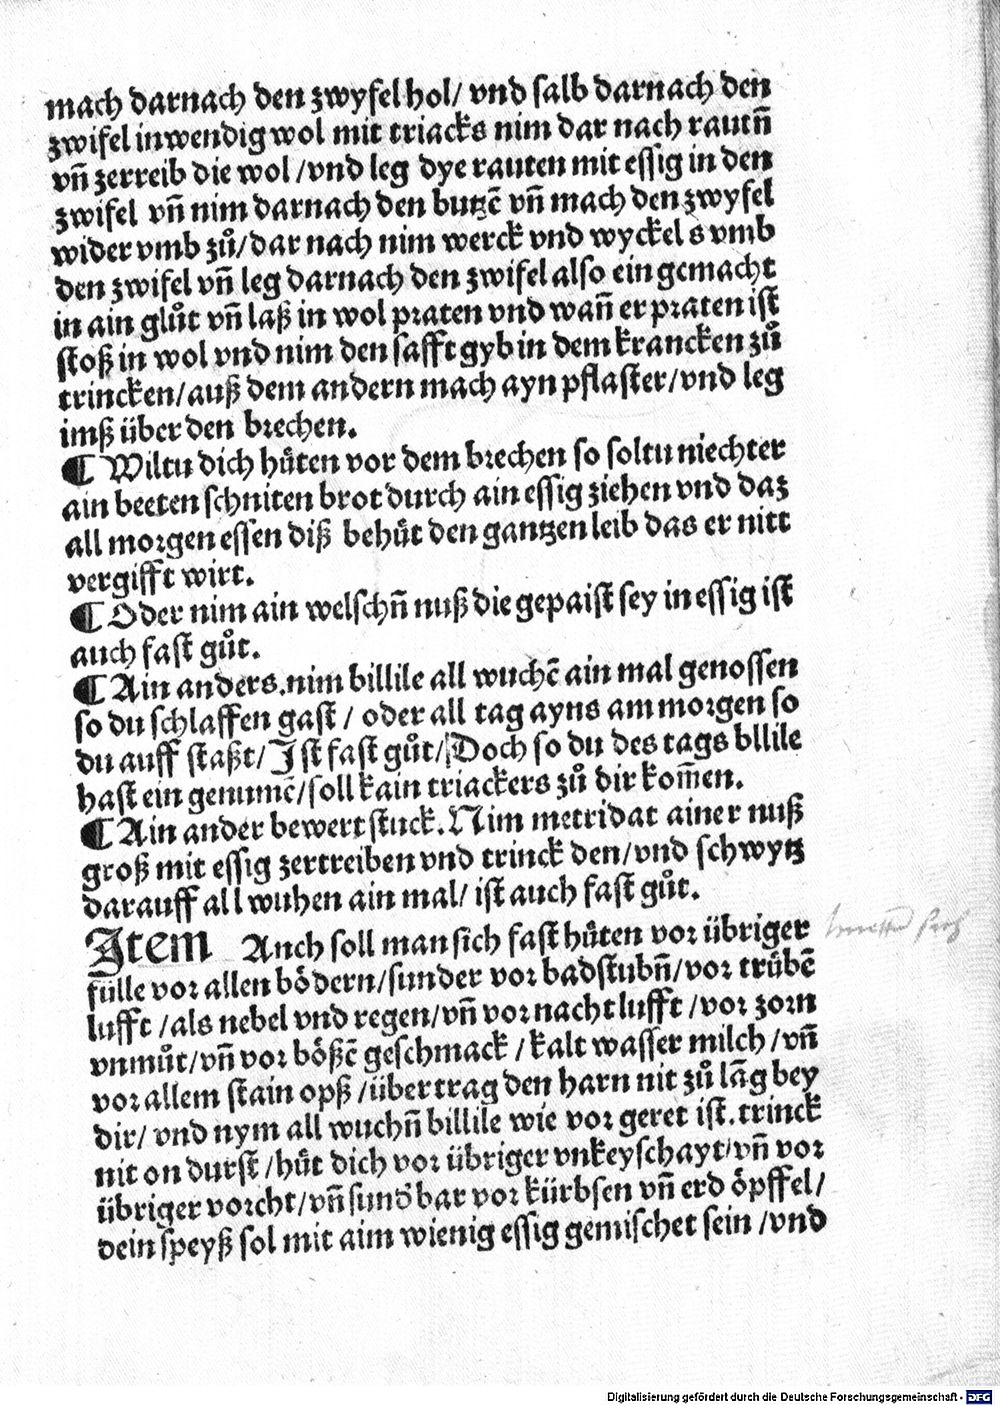 mach darnach den zwyfel hol/ vnd salb darnach den
zwifel inwendig wol mit triacks nim dar nach rautn̄
vn̄ zerreib die wol /vnd leg dye rauten mit essig in den
zwifel vn̄ nim darnach den butzē vn̄ mach den zwyfel
wider vmb zů/dar nach nim werck vnd wyckel s vmb
den zwifel vn̄ leg darnach den zwifel also ein gemacht
in ain glůt vn̄ laß in wol praten vnd wan̄ er praten ist
stoß in wol vnd nim den safft gyb in dem krancken zů
trincken/auß dem andern mach ayn pflaster/vnd leg
imß über den brechen.
¶ Wiltu dich hüten vor dem brechen so soltu niechter
ain beeten schniten brot durch ain essig ziehen vnd daz
all morgen essen diß behüt den gantzen leib das er nitt
vergifft wirt.
¶ Oder nim ain welschn̄ nuß die gepaist sey in essig ist
auch fast gůt.
¶ Ain anders.nim billile all wuchē ain mal genossen
so du schlaffen gast / oder all tag ayns am morgen so
du auff staßt/ Ist fast gůt/Doch so du des tags bllile
hast ein genumē/soll kain triackers zů dir kom̄en.
¶ Ain ander bewert stuck. Nim metridat ainer nuß
groß mit essig zertreiben vnd trinck den/vnd schwytz
darauff all wuhen ain mal/ ist auch fast gůt.
Item Anch soll man sich fast hüten vor übriger
fülle vor allen bödern/sunder vor badstubn̄/vor trübē
lufft /als nebel vnd regen/vn̄ vor nacht lufft /vor zorn
vnmůt/vn̄ vor bößē geschmack /kalt wasser milch /vn̄
vor allem stain opß /übertrag den harn nit zů lāg bey
dir/ vnd nym all wuchn̄ billile wie vor geret ist.trinck
nit on durst /hüt dich vor übriger vnkeyschayt/vn̄ vor
übriger vorcht/vn̄ sunď bar vor kürbsen vn̄ erd öpffel/
dein speyß sol mit aim wienig essig gemischet sein /vnd
Digitalisierung gefördert durch die Deutsche Forschungsgemeinschaft - DFG